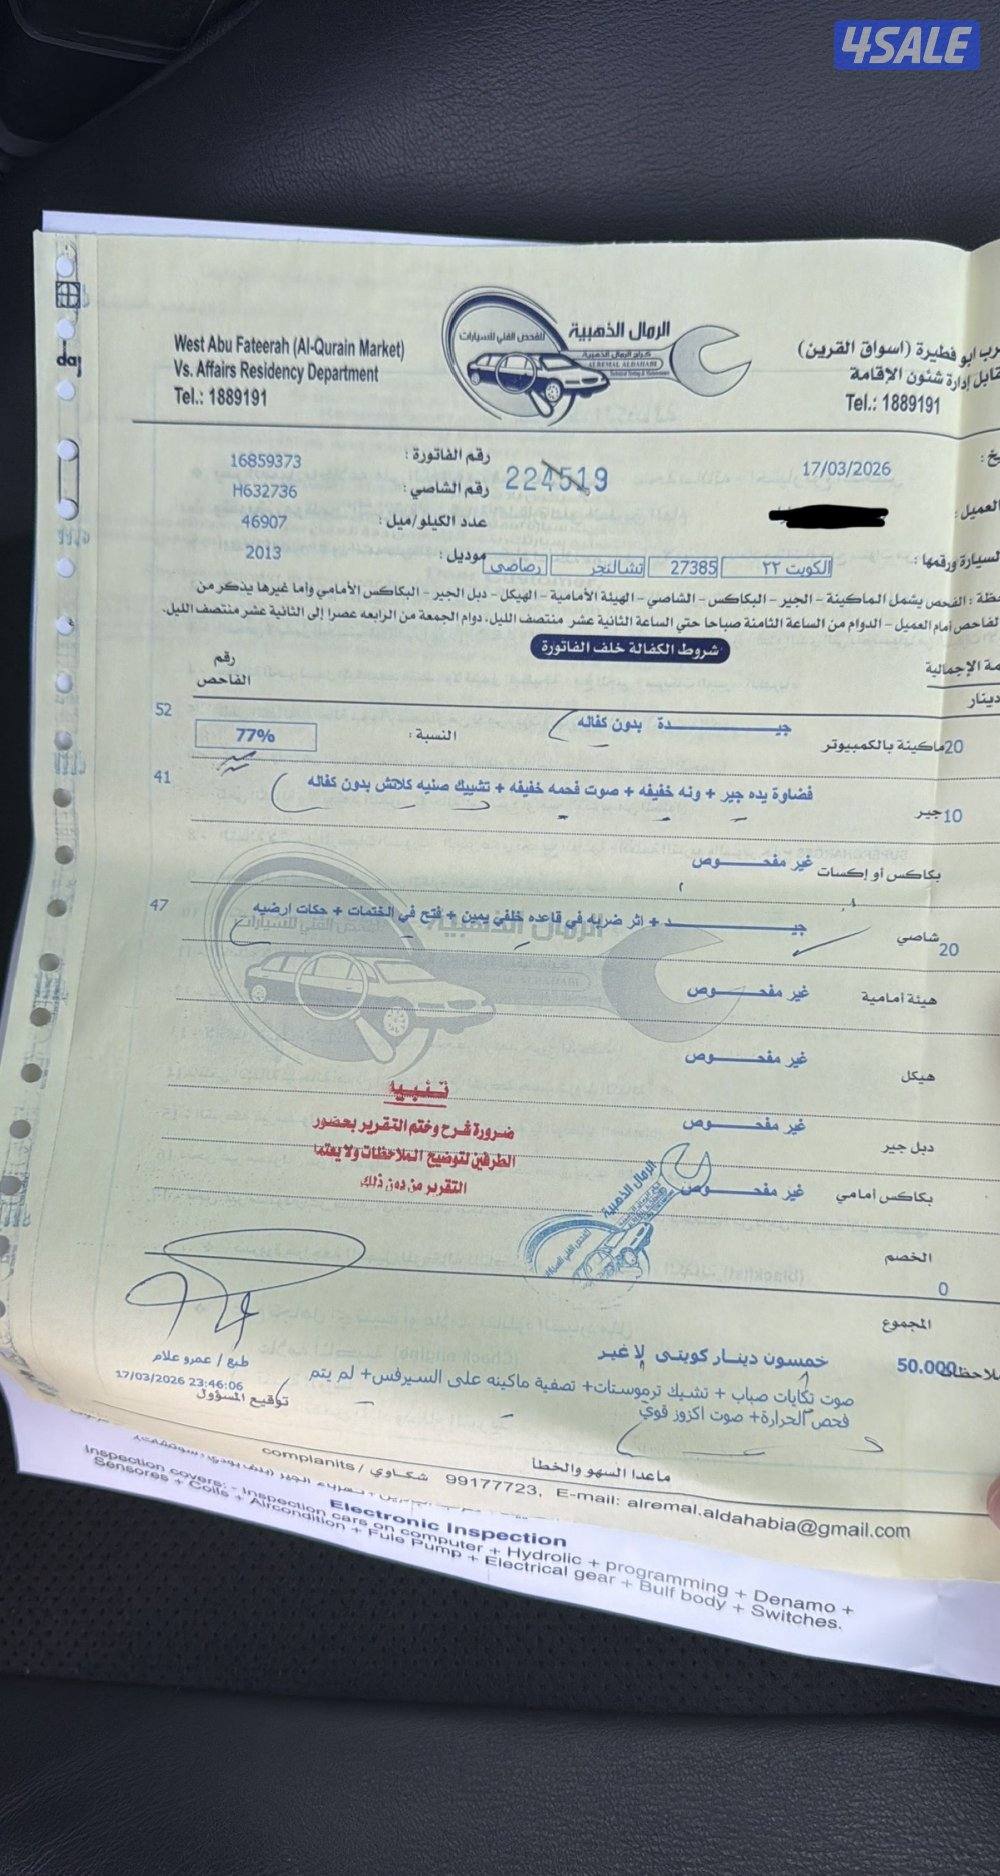 4SALE
West Abu Fateerah (Al-Qurain Market)
Vs. Affairs Residency Department
Tel.: 1889191
الرمال الذهبية
للفحص الفني للسيارات
كراج الرمال الذهبية
ALREMAL ALDAHABI
رب ابو فطيرة (اسواق القرين)
قابل إدارة شئون الإقامة
Tel.: 1889191
17/03/2026
224519
رقم الفاتورة : 16859373
رقم الشاصي : H632736
العميل :
عدد الكيلو/ميل : 46907
السيارة ورقمها : الكويت ٢٢ 27385 تشالنجر رصاصي
موديل : 2013
حظة : الفحص يشمل الماكينة - الجير - البكاكس - الشاصي - الهيئة الأمامية - الهيكل - دبل الجير - البكاكس الأمامي وأما غيرها يذكر من
لفاحص أمام العميل - الدوام من الساعة الثامنة صباحا حتي الساعة الثانية عشر منتصف الليل. دوام الجمعة من الرابعه عصرا إلى الثانية عشر منتصف الليل.
شروط الكفالة خلف الفاتورة
مة الإجمالية
دينار
رقم الفاحص
20 ماكينة بالكمبيوتر جيـــدة بدون كفاله النسبة : 77% 52
10 جير فضاوة يده جير + ونه خفيفه + صوت فحمه خفيفه + تشييك صنيه كلاتش بدون كفاله 41
بكاكس أو إكسات غير مفحـــوص
20 شاصي جيـــد + اثر ضربه في قاعده خلفي يمين + فتح في الختمات + حكات ارضيه 47
هيئة أمامية غير مفحـــوص
هيكل غير مفحـــوص
دبل جير غير مفحـــوص
بكاكس أمامي غير مفحـــوص
تنبيه
ضرورة شرح وختم التقرير بحضور
الطرفين لتوضيح الملاحظات ولا يعتما
التقرير من دون ذلك
الرمال الذهبية
الخصم 0
المجموع
50.000 خمسون دينار كويتى لا غير
صوت تكايات صباب + تشيك ترموستات + تصفية ماكينه على السيرفس + لم يتم
فحص الحرارة + صوت اكزوز قوي
طبع / عمرو علام
17/03/2026 23:46:06
توقيع المسؤول
ماعدا السهو والخطأ
complanits / شكاوي 99177723, E-mail: alremal.aldahabia@gmail.com
Electronic Inspection
Inspection covers: - Inspection cars on computer + Hydrolic + programming + Denamo +
Sensores + Coils + Aircondition + Fule Pump + Electrical gear + Bulf body + Switches.